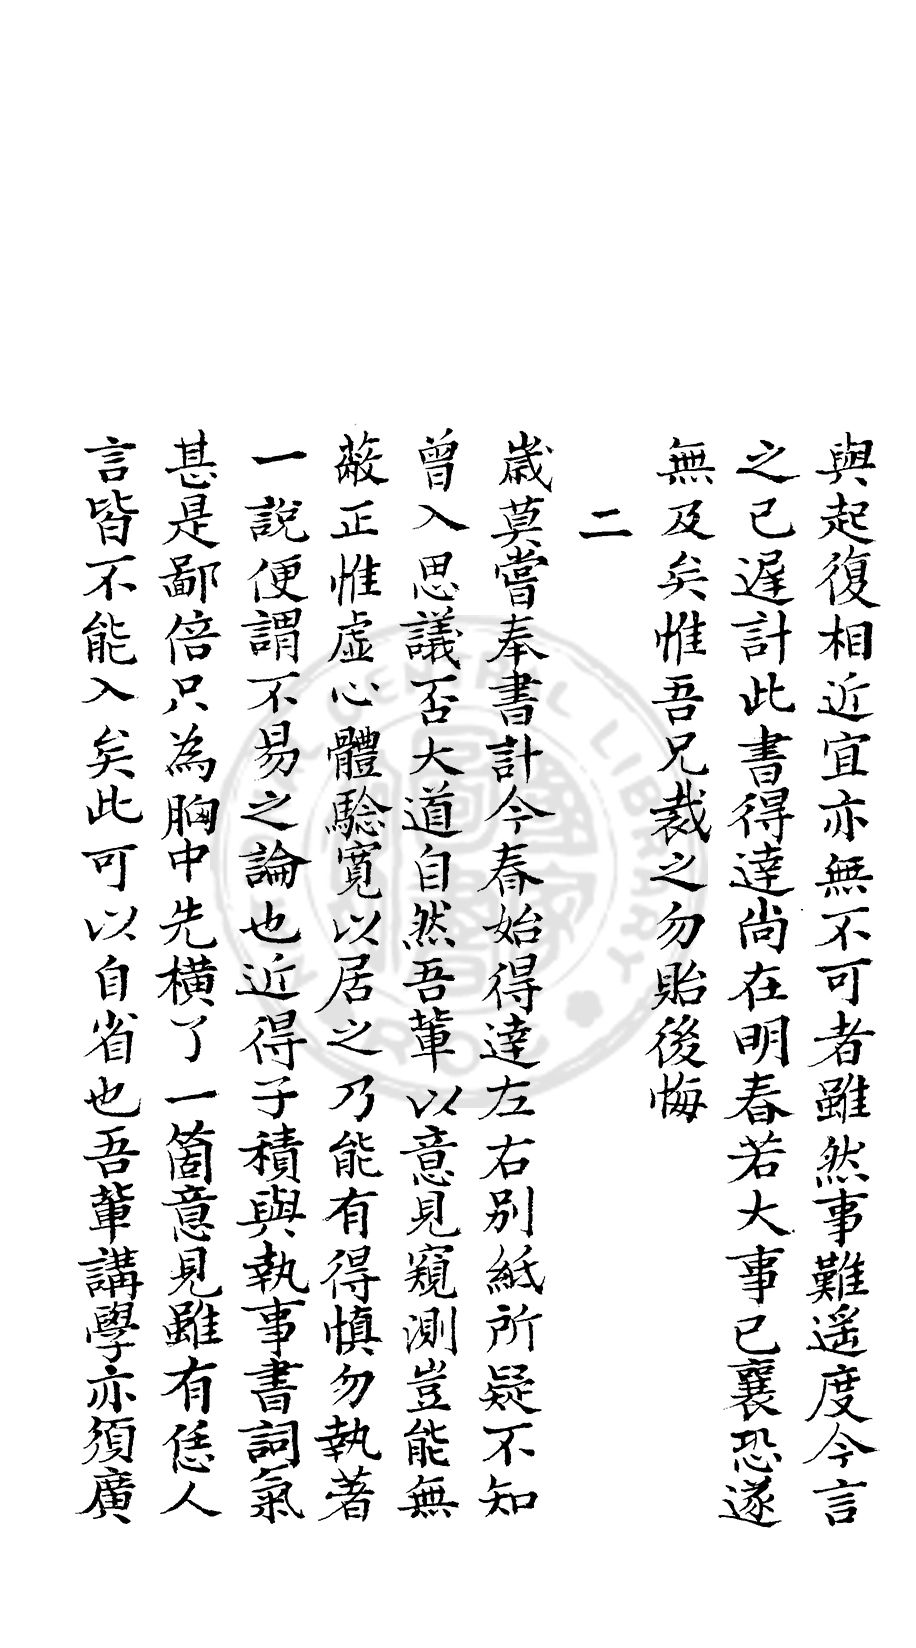 與起復相近宜亦無不可者雖然事難遥度今言
之已遲計此書得達尚在明春若大事已襄恐遂
無及矣惟吾兄裁之勿貽後悔
二
歲莫嘗奉書計今春始得達左右別紙所疑不知
曾入思議否大道自然吾輩以意見窺測豈能無
蔽正惟虛心體驗寬以居之乃能有得慎勿執著
一說便謂不易之論也近得子積與執事書詞氣
甚是鄙倍只為胸中先橫了一箇意見雖有恁人
言皆不能入矣此可以自省也吾輩講學亦須廣
CENTRAL LIBRARY